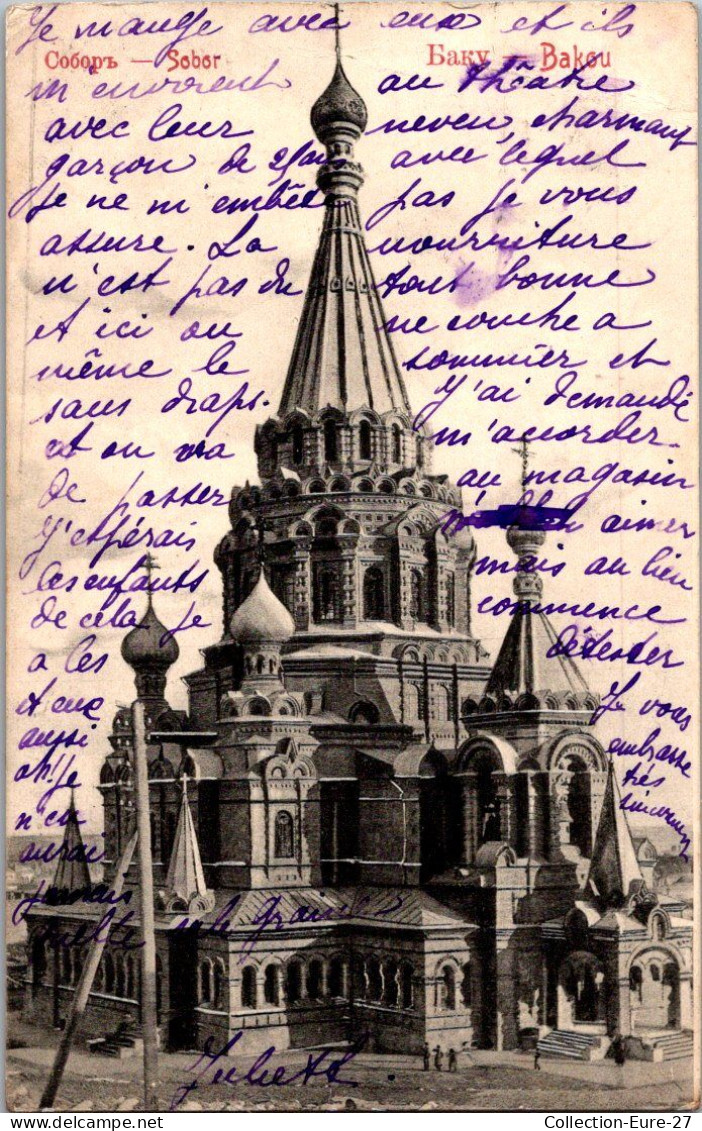 Je mange avec eux et ils
Соборъ — Sobor Баку — Bakou
m'envoient au théâtre
avec leur neveu, charmant
garçon de 25 ans avec lequel
je ne m'embête pas je vous
assure. La nourriture
n'est pas du tout bonne
et ici on ne couche a
même le sommier et
sans draps. J'ai demandé
et on va m'accorder
de passer au magasin
J'espérais aimer
les enfants mais au lieu
de cela je commence
a les détester
et eux Je vous
aussi embrasse
ah! Je très
n'en sincèrement
aurai
jamais
de graines
Juliette
Collection-Eure-27